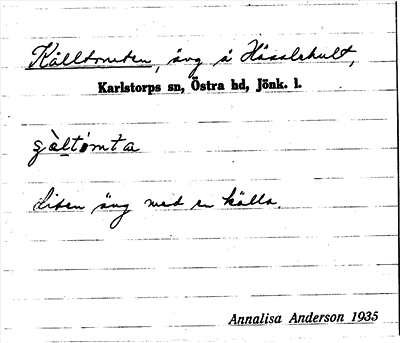 Källtomten, äng å Hässlehult,
Karlstorps sn, Östra hd, Jönk. l.
gὰltòmta
Liten äng med en källa.
Annalisa Anderson 1935